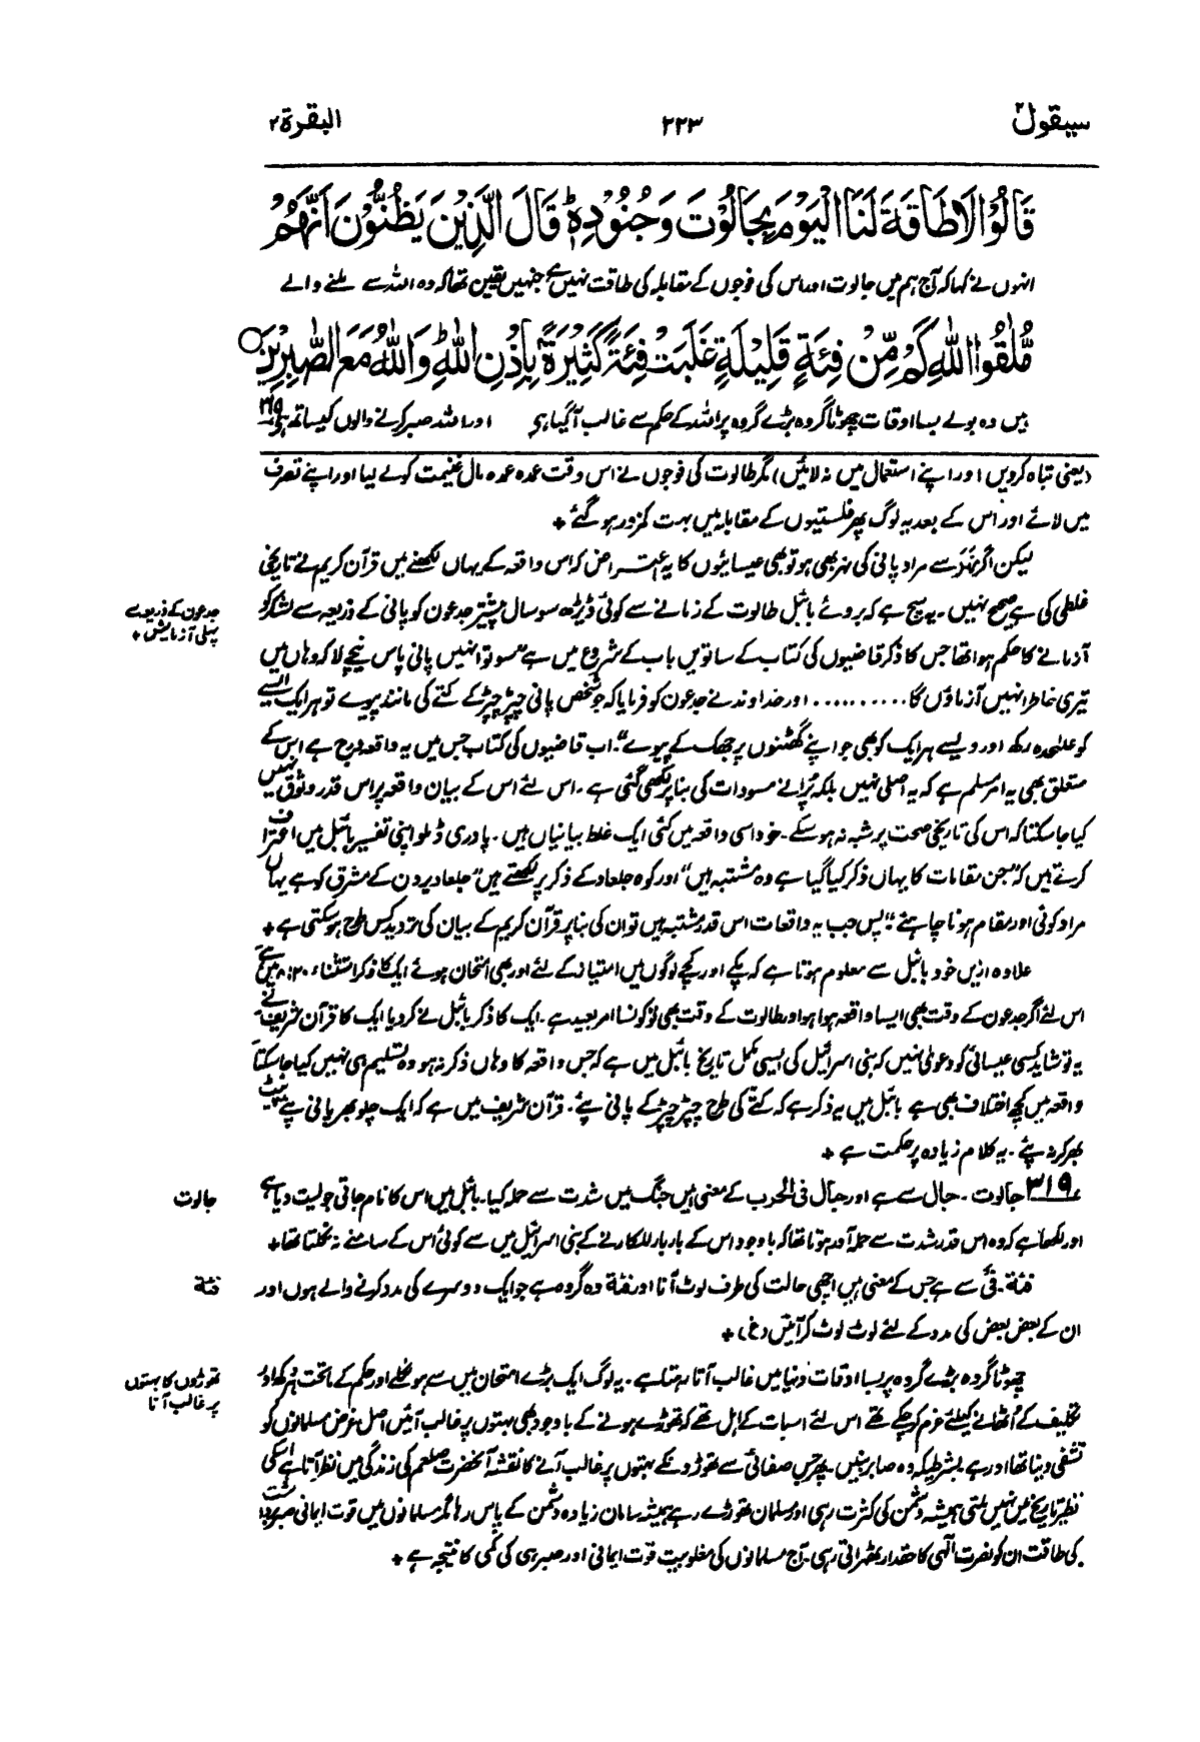 سیقول ۲
۲۲۳
البقرۃ ۲
قَالُوْا لَا طَاقَةَ لَنَا الْیَوْمَ بِجَالُوْتَ وَجُنُوْدِهٖ ؕ قَالَ الَّذِیْنَ یَظُنُّوْنَ اَنَّهُمْ
انہوں نے کہا کہ آج ہم میں جالوت اور اس کی فوجوں کے مقابلہ کی طاقت نہیں ہے جنہیں یقین تھا کہ وہ اللہ سے ملنے والے
مُّلٰقُوا اللّٰهِ كَمْ مِّنْ فِئَةٍ قَلِیْلَةٍ غَلَبَتْ فِئَةً كَثِیْرَةًۢ بِاِذْنِ اللّٰهِ ؕ وَاللّٰهُ مَعَ الصّٰبِرِیْنَ ○
ہیں وہ بولے بسا اوقات چھوٹا گروہ بڑے گروہ پر اللہ کے حکم سے غالب آگیا ہے اور اللہ صبر کرنے والوں کیساتھ ہے ۳۱۹
(یعنی تباہ کردیں اور اپنے استعمال میں نہ لائیں) مگر طالوت کی فوجوں نے اس وقت عمدہ عمدہ مال غنیمت کو لے لیا اور اپنے تصرف
میں لائے اور اس کے بعد یہ لوگ پھر فلستیوں کے مقابلہ میں بہت کمزور ہو گئے +
لیکن اگر نَہَر سے مراد پانی کی نہر بھی ہو تو بھی عیسائیوں کا یہ اعتراض کہ اس واقعہ کے یہاں لکھنے میں قرآن کریم نے تاریخی
غلطی کی ہے صحیح نہیں۔ یہ سچ ہے کہ بروئے بائبل طالوت کے زمانے سے کوئی ڈیڑھ سو سال پیشتر جدعون کو پانی کے ذریعہ سے لشکر کو
جدعون کے ذریعے
پہلی آزمایش +
آزمانے کا حکم ہوا تھا جس کا ذکر قاضیوں کی کتاب کے ساتویں باب کے شروع میں ہے "سو تو انہیں پانی پاس نیچے لا کہ وہاں میں
تیری خاطر انہیں آزماؤں گا .......... اور خداوند نے جدعون کو فرمایا کہ جو شخص پانی چپڑ چپڑ کے کتے کی مانند پیوے تو ہر ایک ایسے
کو علیحدہ رکھ اور ویسے ہر ایک کو بھی جو اپنے گھٹنوں پر جھک کے پیوے"۔ اب قاضیوں کی کتاب جس میں یہ واقعہ درج ہے اس کے
متعلق بھی یہ امر مسلم ہے کہ یہ اصلی نہیں بلکہ پُرانے مسودات کی بنا پر لکھی گئی ہے۔ اس لئے اس کے بیان واقعہ پر اس قدر وثوق نہیں
کیا جاسکتا کہ اس کی تاریخی صحت پر شبہ نہ ہو سکے۔ خود اسی واقعہ میں کئی ایک غلط بیانیاں ہیں۔ پادری ڈملو اپنی تفسیر بائبل میں اعتراف
کرتے ہیں کہ "جن مقامات کا یہاں ذکر کیا گیا ہے وہ مشتبہ ہیں" اور کوہ جلعاد کے ذکر پر لکھتے ہیں "جلعاد یردن کے مشرق کو ہے یہاں
مراد کوئی اور مقام ہونا چاہئے"۔ پس جب یہ واقعات اس قدر مشتبہ ہیں تو ان کی بنا پر قرآن کریم کے بیان کی تردید کس طرح ہوسکتی ہے +
علاوہ ازیں خود بائبل سے معلوم ہوتا ہے کہ پکے اور کچے لوگوں میں امتیاز کے لئے اور بھی امتحان ہوئے ایک کا ذکر استثناء ۲۰: ۸ میں ہے
اس لئے اگر جدعون کے وقت بھی ایسا واقعہ ہوا ہو اور طالوت کے وقت بھی تو کونسا امر بعید ہے۔ ایک کا ذکر بائبل نے کردیا ایک کا قرآن شریف نے
یہ تو شاید کسی عیسائی کو دعویٰ نہیں کہ بنی اسرائیل کی ایسی مکمل تاریخ بائبل میں ہے کہ جس واقعہ کا وہاں ذکر نہ ہو وہ تسلیم ہی نہیں کیا جاسکتا
واقعہ میں کچھ اختلاف بھی ہے بائبل میں یہ ذکر ہے کہ کتے کی طرح چپڑ چپڑ کے پانی پئے۔ قرآن شریف میں ہے کہ ایک چلو بھر پانی پئے پیٹ
بھر کر نہ پئے۔ یہ کلام زیادہ پر حکمت ہے +
۳۱۹ جالوت۔ جال سے ہے اور جال فی الحرب کے معنی ہیں جنگ میں شدت سے حملہ کیا۔ بائبل میں اس کا نام جاتی جولیت دیا ہے
جالوت
اور لکھا ہے کہ وہ اس قدر شدت سے حملہ آور ہوتا تھا کہ باوجود اس کے بار بار للکارنے کے بنی اسرائیل میں سے کوئی اس کے سامنے نہ نکلتا تھا +
فئة۔ فَیْءٌ سے ہے جس کے معنی ہیں اچھی حالت کی طرف لوٹ آنا اور فئة وہ گروہ ہے جو ایک دوسرے کی مدد کرنے والے ہوں اور
فئة
ان کے بعض بعض کی مدد کے لئے لوٹ لوٹ کر آئیں (غ) +
چھوٹا گروہ بڑے گروہ پر بسا اوقات دنیا میں غالب آتا رہتا ہے۔ یہ لوگ ایک بڑے امتحان میں سے ہو نکلے اور حکم کے ماتحت ہر دکھ اور
تھوڑوں کا بہتوں
پر غالب آنا
تکلیف کے اُٹھانے کیلئے عزم کرچکے تھے اس لئے اس بات کے اہل تھے کہ تھوڑے ہونے کے باوجود بھی بہتوں پر غالب آئیں اصل غرض مسلمانوں کو
تشفی دینا تھا اور ہے بشرطیکہ وہ صابر بنیں۔ پھر جس صفائی سے تھوڑوں کے بہتوں پر غالب آنے کا نقشہ آنحضرت صلعم کی زندگی میں نظر آتا ہے اسکی
نظیر تاریخ میں نہیں ملتی ہمیشہ دشمن کی کثرت رہی اور مسلمان تھوڑے رہے ہمیشہ سامان زیادہ دشمن کے پاس رہا مگر مسلمانوں میں قوت ایمانی صبر برداشت
کی طاقت ان کو نصرت الٰہی کا حقدار ٹھہراتی رہی۔ آج مسلمانوں کی مغلوبیت قوت ایمانی اور صبر ہی کی کمی کا نتیجہ ہے +